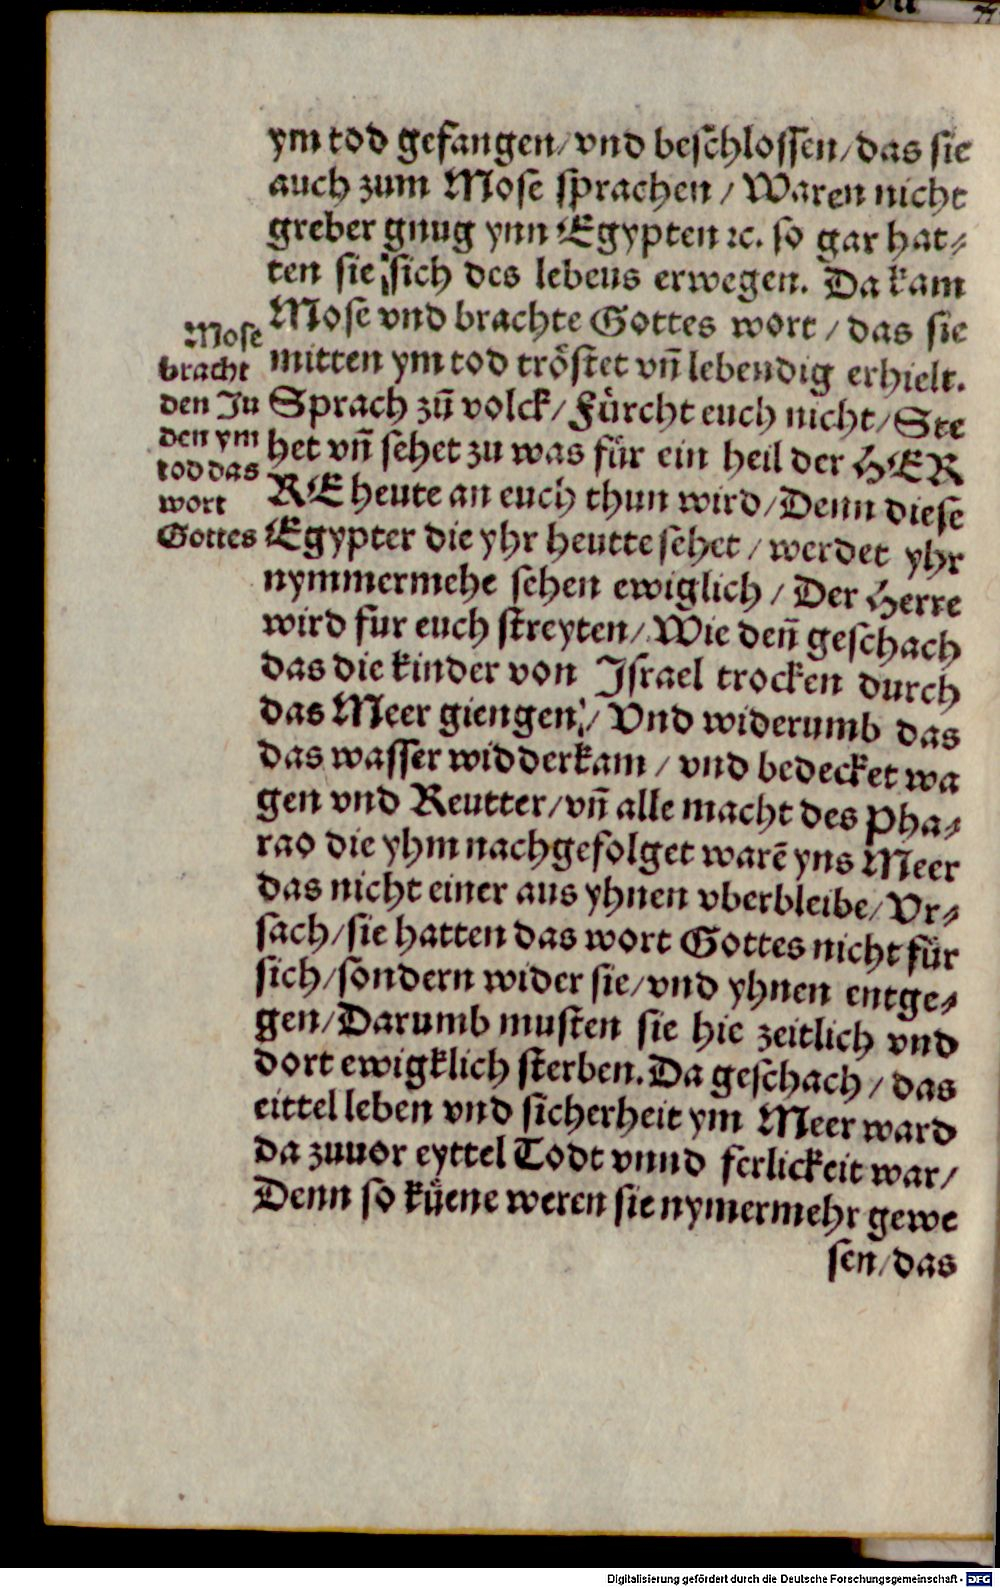 ym tod gefangen/ vnd beschlossen/ das sie
auch zum Mose sprachen / Waren nicht
greber gnug ynn Egypten ꝛc. so gar hat⸗
ten sie sich des lebens erwegen. Da kam
Mose vnd brachte Gottes wort / das sie
mitten ym tod tröstet vn̄ lebendig erhielt.
Sprach zū volck/ Fürcht euch nicht/ Ste
het vn̄ sehet zu was für ein heil der HER
RE heute an euch thun wird/ Denn diese
Egypter die yhr heutte sehet / werdet yhr
nymmermehe sehen ewiglich / Der Herre
wird fur euch streyten/ Wie den̄ geschach
das die kinder von Israel trocken durch
das Meer giengen / Vnd widerumb das
das wasser widderkam / vnd bedecket wa
gen vnd Reutter/ vn̄ alle macht des Pha⸗
rao die yhm nachgefolget warē yns Meer
das nicht einer aus yhnen vberbleibe/ Vr⸗
sach/ sie hatten das wort Gottes nicht für
sich/ sondern wider sie/ vnd yhnen entge⸗
gen/ Darumb musten sie hie zeitlich vnd
dort ewigklich sterben. Da geschach / das
eittel leben vnd sicherheit ym Meer ward
da zuuor eyttel Todt vnnd ferlickeit war/
Denn so küene weren sie nymermehr gewe
sen/ das
Mose
bracht
den Ju
den ym
tod das
wort
Gottes
Digitalisierung gefördert durch die Deutsche Forschungsgemeinschaft - DFG